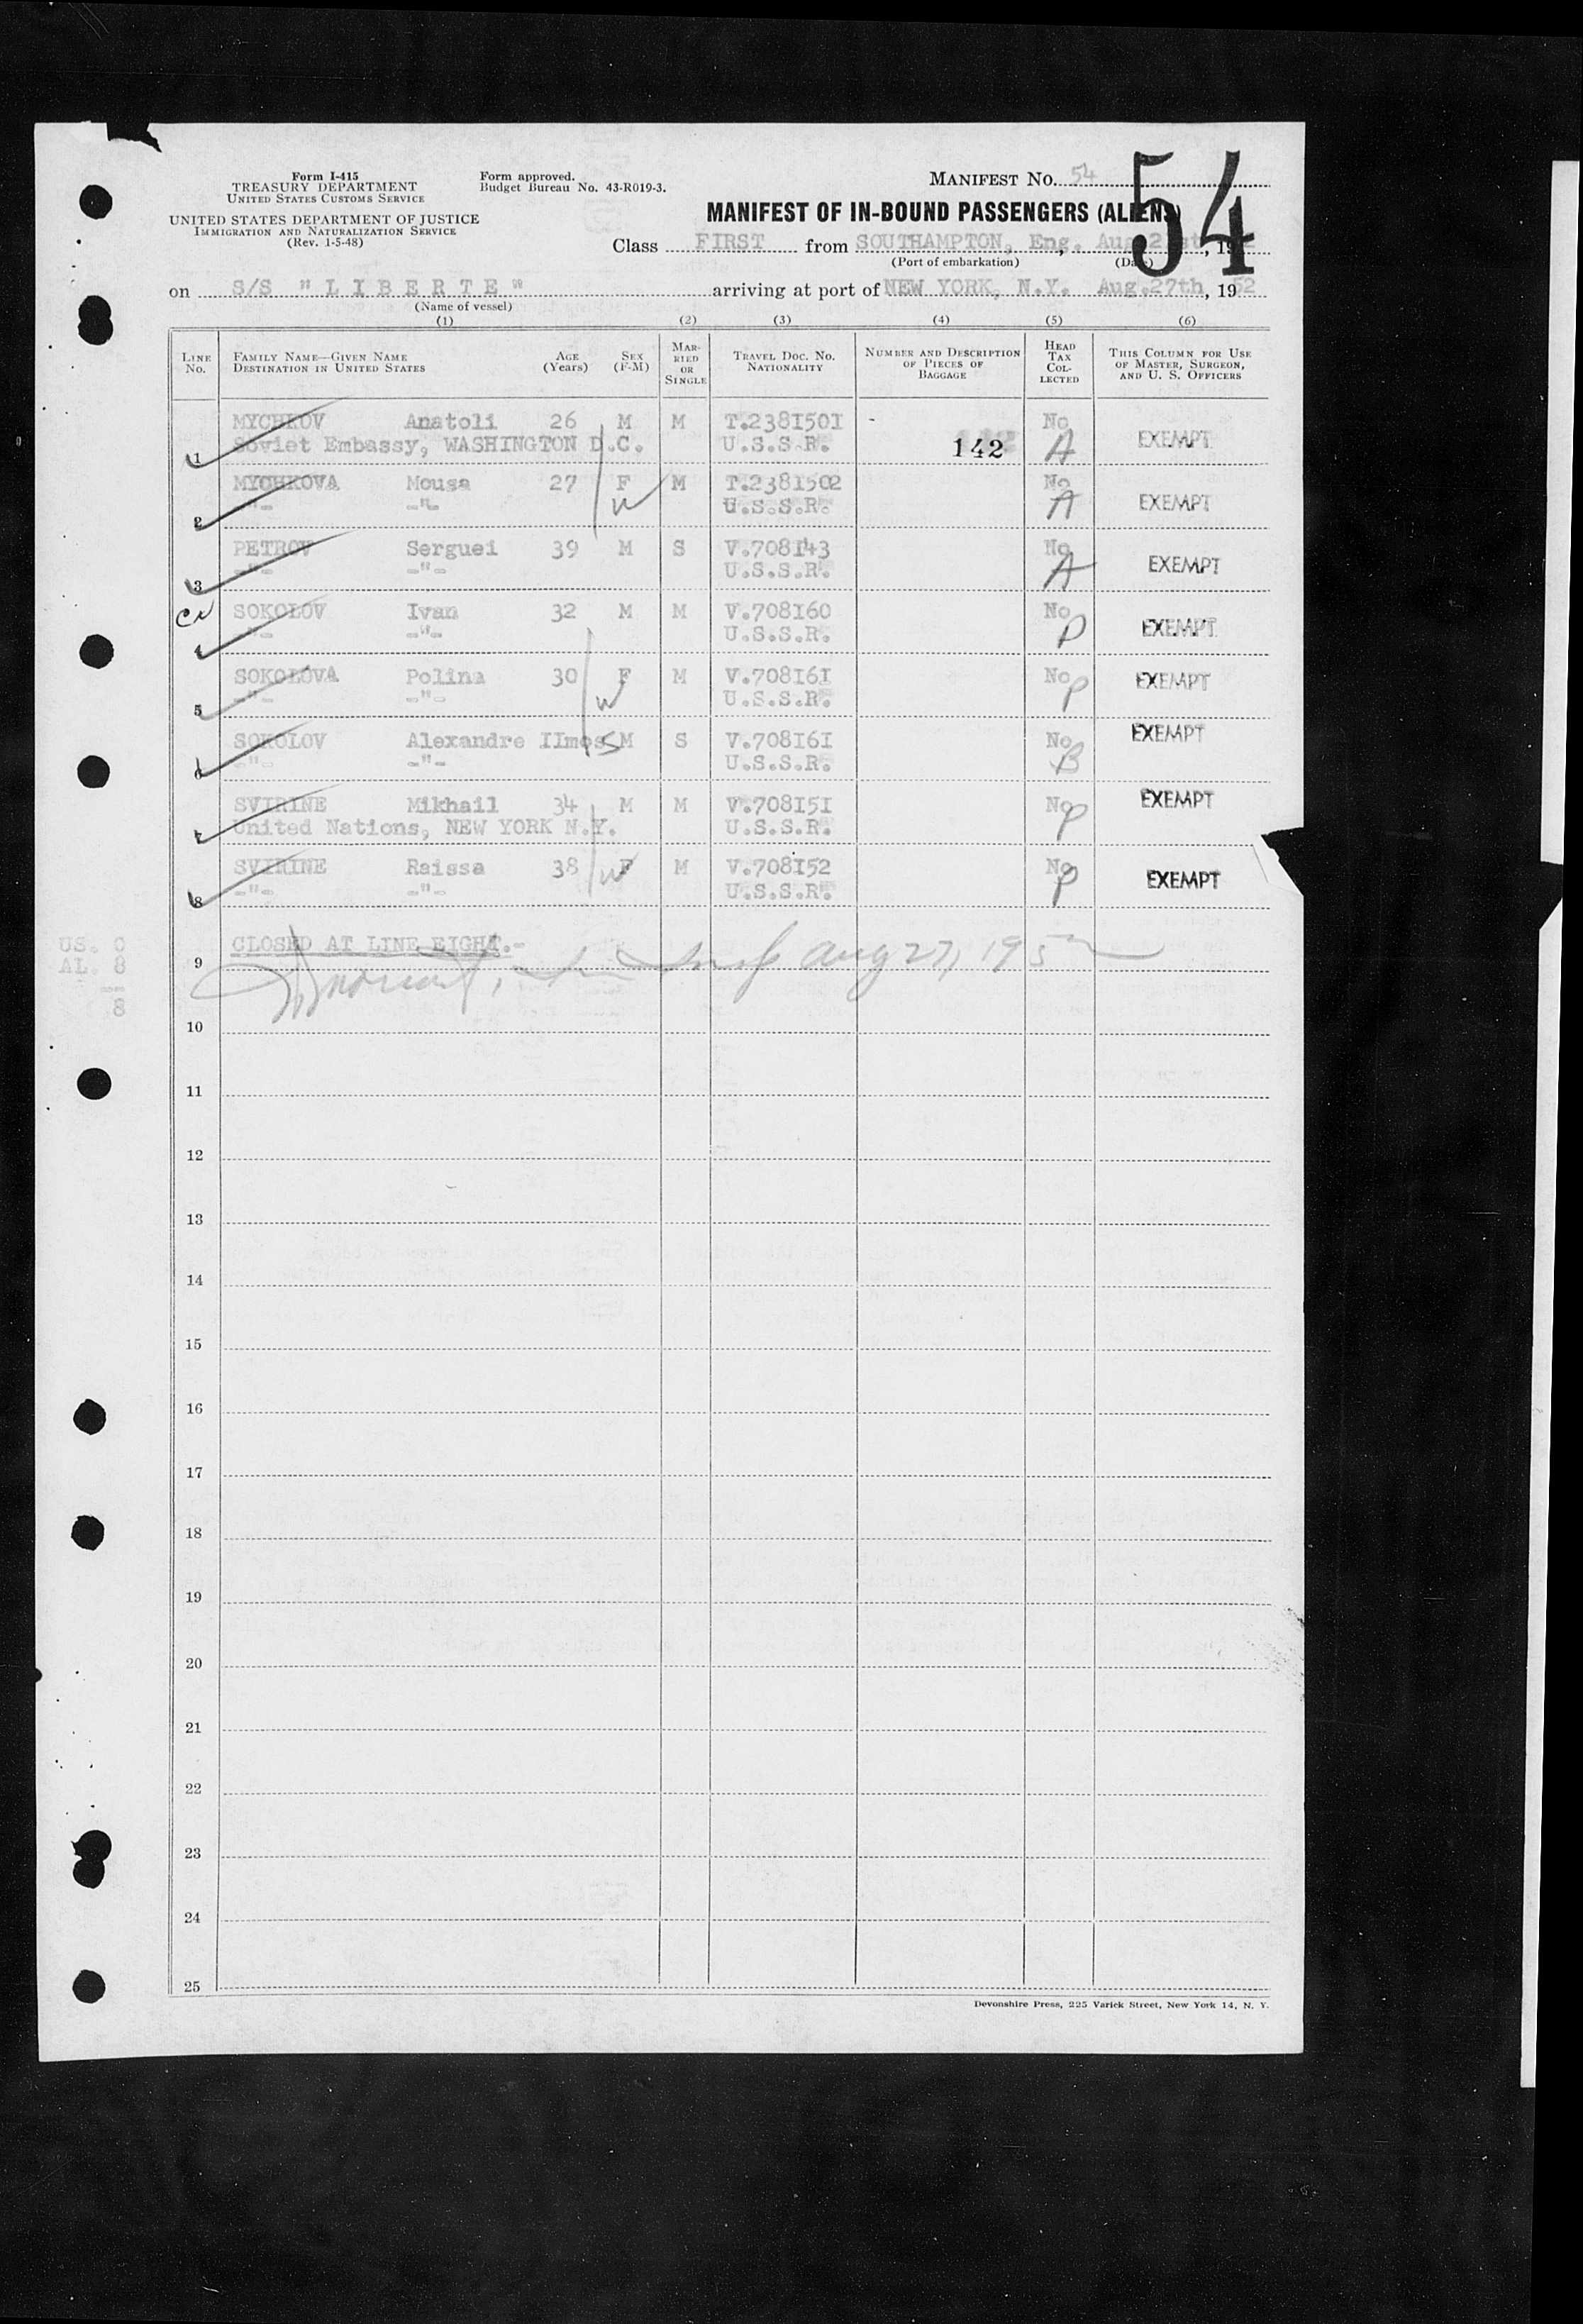 Form I-415
TREASURY DEPARTMENT
UNITED STATES CUSTOMS SERVICE
UNITED STATES DEPARTMENT OF JUSTICE
IMMIGRATION AND NATURALIZATION SERVICE
(Rev. 1-5-48)
Form approved.
Budget Bureau No. 43-R019-3.
MANIFEST NO. 54
54
MANIFEST OF IN-BOUND PASSENGERS (ALIENS)
Class FIRST from SOUTHAMPTON, Eng, Aug 21st, 1952
(Port of embarkation) (Date)
on S/S "LIBERTE" arriving at port of NEW YORK, N.Y. Aug.27th, 1952
(Name of vessel)
(1) (2) (3) (4) (5) (6)
LINE NO. FAMILY NAME—GIVEN NAME DESTINATION IN UNITED STATES AGE (Years) SEX (F-M) MARRIED OR SINGLE TRAVEL DOC. NO. NATIONALITY NUMBER AND DESCRIPTION OF PIECES OF BAGGAGE HEAD TAX COLLECTED THIS COLUMN FOR USE OF MASTER, SURGEON, AND U. S. OFFICERS
MYCHKOV Anatoli 26 M M T.2381501 - No
1 Soviet Embassy, WASHINGTON D.C. U.S.S.R. 142 A EXEMPT
MYCHKOVA Mousa 27 F M T.2381502 No
2 -"- -"- W U.S.S.R. A EXEMPT
PETROV Serguei 39 M S V.708143 No
3 -"- -"- U.S.S.R. A EXEMPT
CN SOKOLOV Ivan 32 M M V.708160 No
4 -"- -"- U.S.S.R. P EXEMPT
SOKOLOVA Polina 30 F M V.708161 No
5 -"- -"- W U.S.S.R. P EXEMPT
SOKOLOV Alexandre IImos S M S V.708161 No EXEMPT
6 -"- -"- U.S.S.R. B
SVIRINE Mikhail 34 M M V.708151 No EXEMPT
7 United Nations, NEW YORK N.Y. U.S.S.R. P
SVIRINE Raissa 38 F M V.708152 No
8 -"- -"- W U.S.S.R. P EXEMPT
US. 0
AL. 8
8
9 CLOSED AT LINE EIGHT.-
Aug 27, 1952
10
11
12
13
14
15
16
17
18
19
20
21
22
23
24
25
Devonshire Press, 225 Varick Street, New York 14, N. Y.